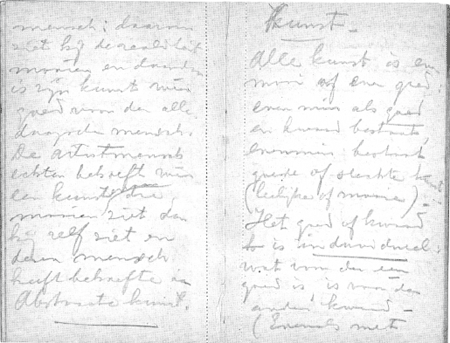 mensch; daarom
ziet hij de realiteit
mooier en daardoor
is zijn kunst
goed voor den alle-
daagschen mensch.
De artist-mensch
echter behoeft
een kunst die
mooier ziet dan
hij zelf ziet en
dezen mensch
heeft behoefte in
Abstracte kunst.
Kunst –
Alle kunst is even
mooi of even goed:
even min als goed
en kwaad bestaat,
evenmin bestaat
goede of slechte kunst
(leelijke of mooie).
Het goed of kwaad
is individueel:
wat voor den een
goed is is voor den
ander kwaad –
(Evenals met